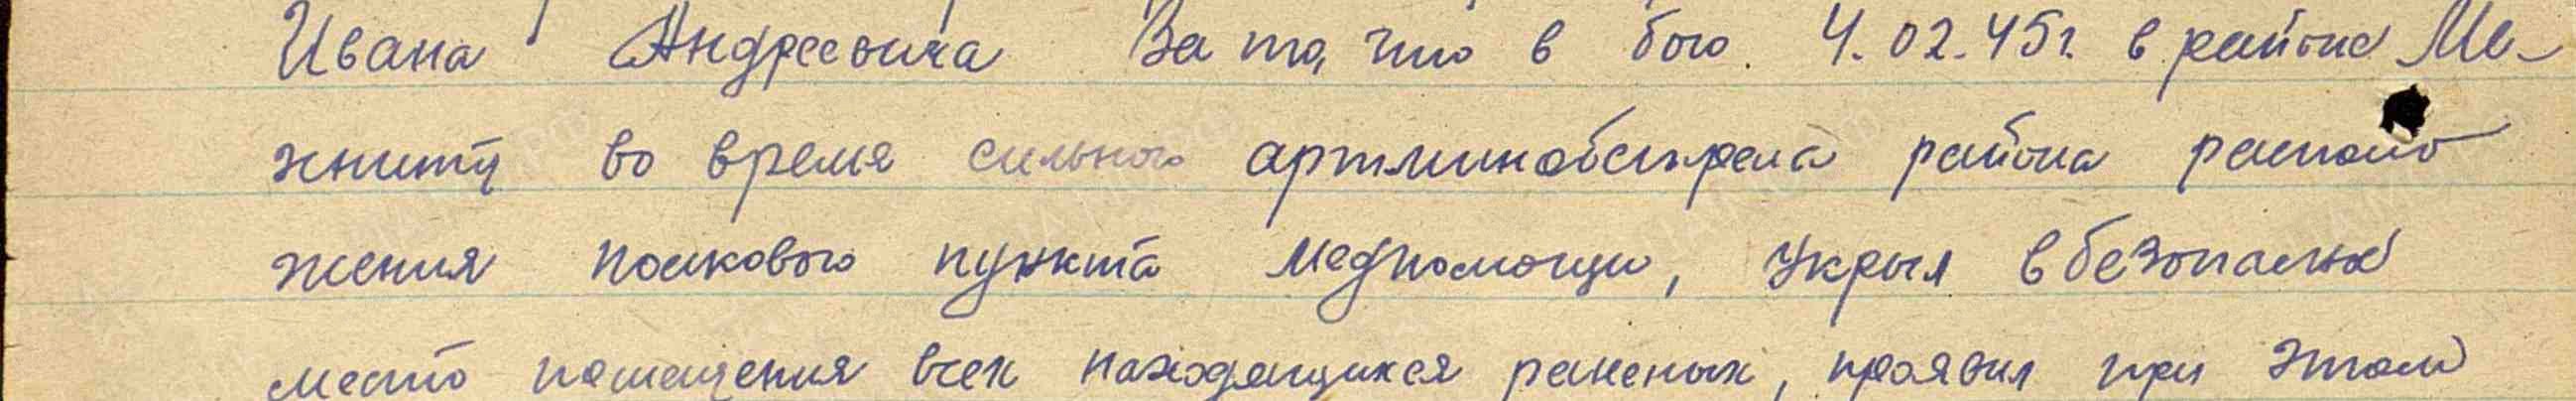 Ивана Андреевича За то, что в бою 4.02.45г. в районе Ме-
жниту во время сильного артминобстрела района располо
жения полкового пункта медпомощи, укрыл в безопасное
место помещения всех находящихся раненых, проявил при этом